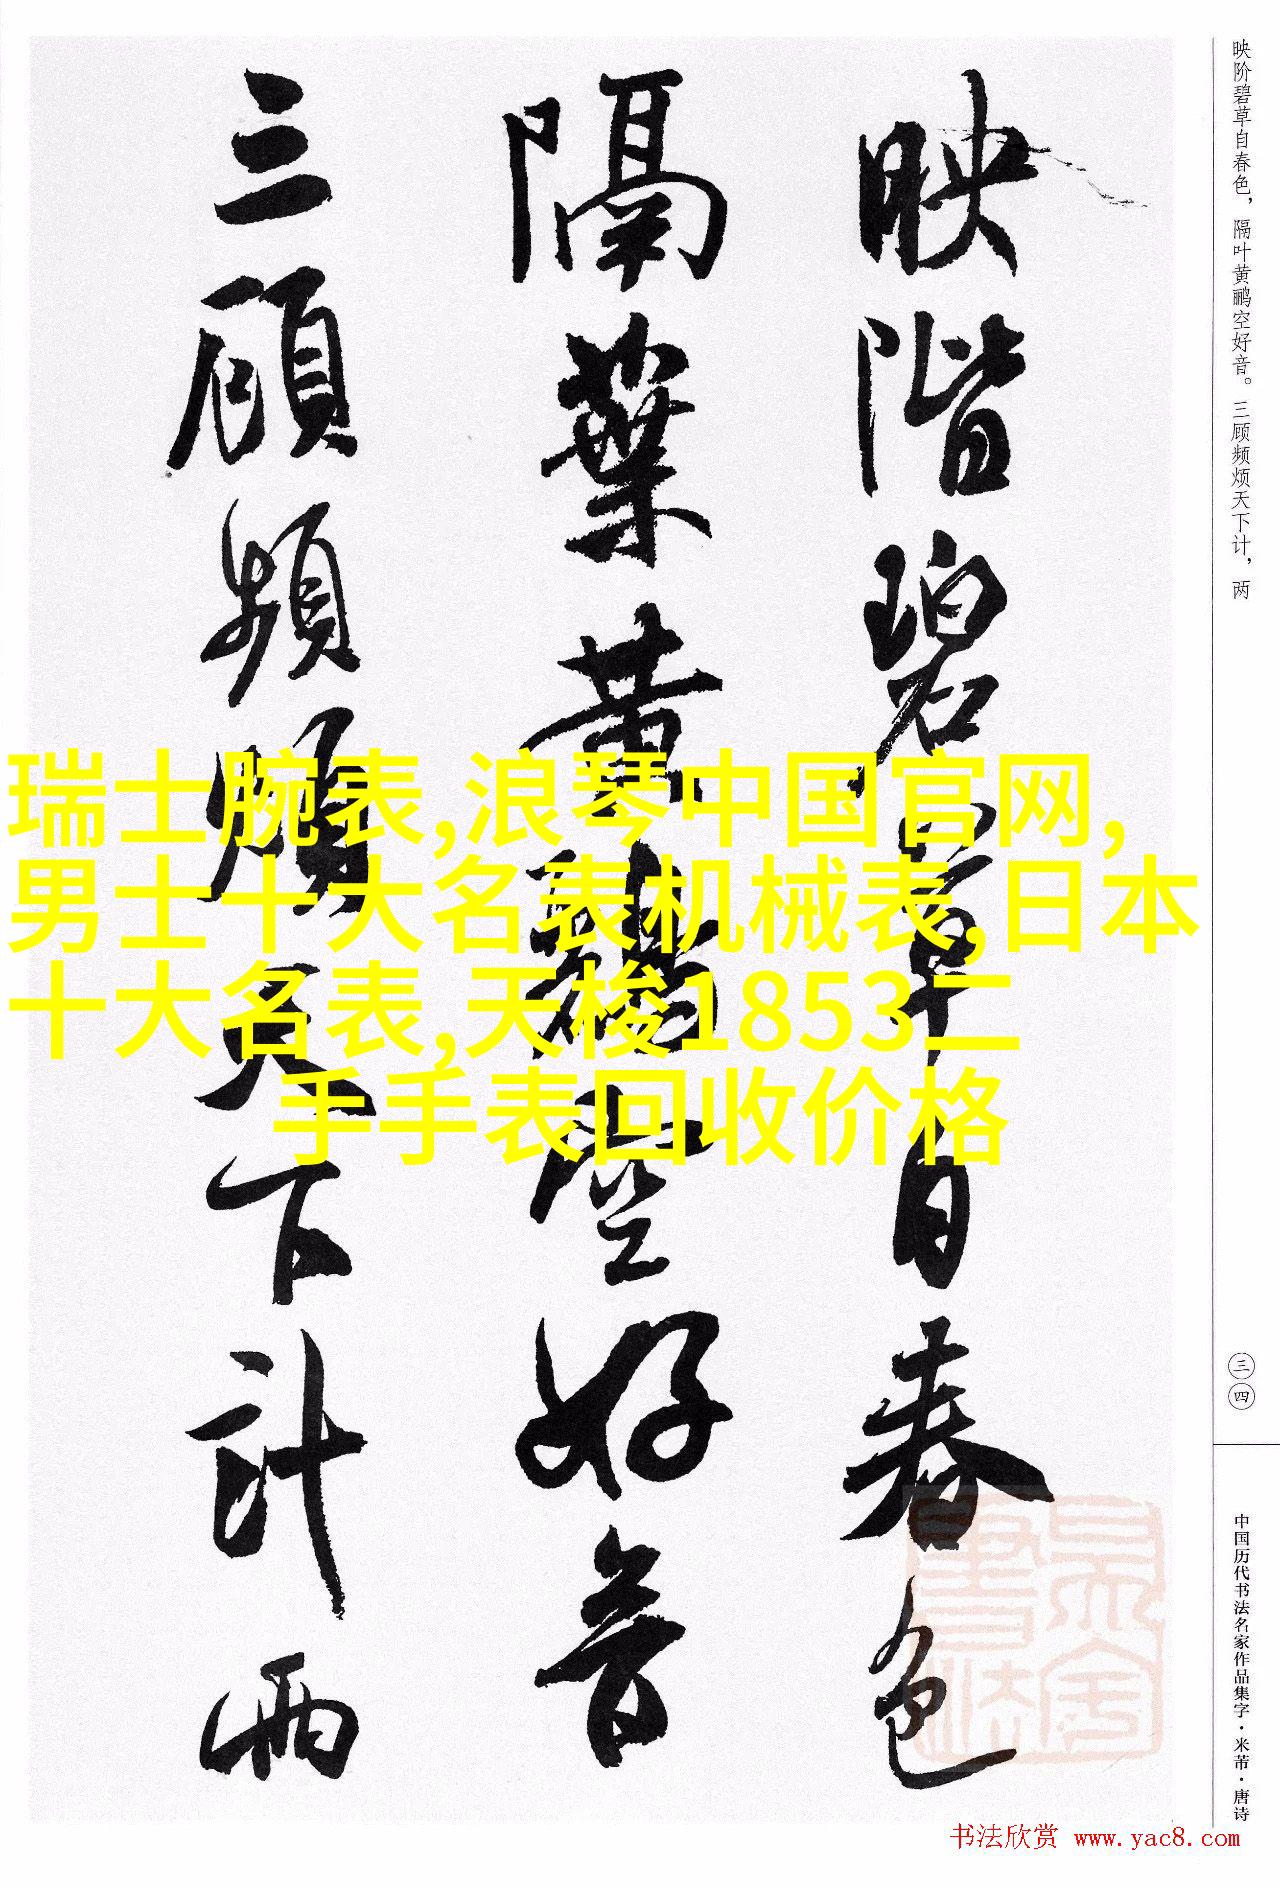 映阶碧草自春色，隔叶黄鹂空好音。三顾频烦天下计，两
映階碧草自春色
隔葉黄鸝空好音
三顧頻煩天下計兩
瑞士腕表,浪琴中国官网,
男士十大名表机械表,日本
十大名表,天梭1853二
手手表回收价格
三四
中国历代书法名家作品集字·米芾·唐诗
书法欣赏 www.yac8.com